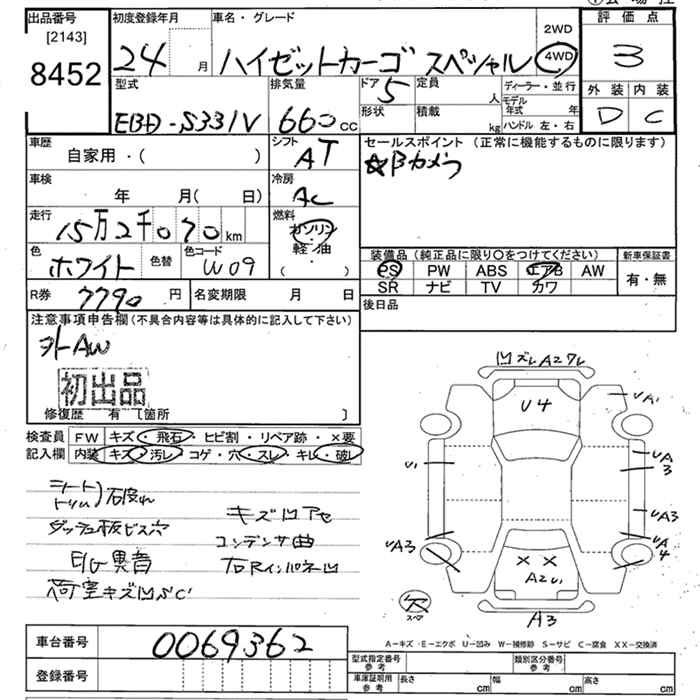 出品番号 初度登録年月 車名・グレード 2WD 評価点
[2143]
8452
24 月 ハイゼットカーゴ スペシャル 4WD 3
型式 排気量 ドア 定員 ディーラー・並行 外装 内装
EBD-S331V 660 cc 5 人 モデル年式 年 D C
形状 積載 kg ハンドル 左・右
車歴 シフト セールスポイント(正常に機能するものに限ります)
自家用・( ) AT ☆Bカメラ
車検 冷房
年 月( 日) AC
走行 燃料
15万2千070 km ガソリン
軽・油
( )
色 色替 色コード 装備品(純正品に限り○をつけてください) 新車保証書
ホワイト W09 PS PW ABS エアB AW 有・無
SR ナビ TV カワ
R券 7790 円 名変期限 月 日 後日品
注意事項申告欄(不具合内容等は具体的に記入して下さい)
外AW
初出品
修復歴 有 [箇所 ]
検査員 FW キズ・飛石・ヒビ割・リペア跡・×要
記入欄 内装 キズ・汚レ・コゲ・穴・スレ・キレ・破レ
シート
トリム)石皮れ
ダッシュ板ビス穴
E/G異音
荷室キズ凹SC
キズ凹アセ
コンデンサ曲
右Rインパネ凹
凹ズレA2ワレ
U4
UA1
U1
UA
3
UA3
UA3
UA
4
× ×
A2U1
欠
スペア
A3
A-キズ・E-エクボ U-凹み W-補修跡 S-サビ C-腐食 XX-交換済
車台番号 0069362
登録番号
型式指定番号 参考 類別区分番号 参考
車庫証明用 参考 長さ cm 幅 cm 高さ cm